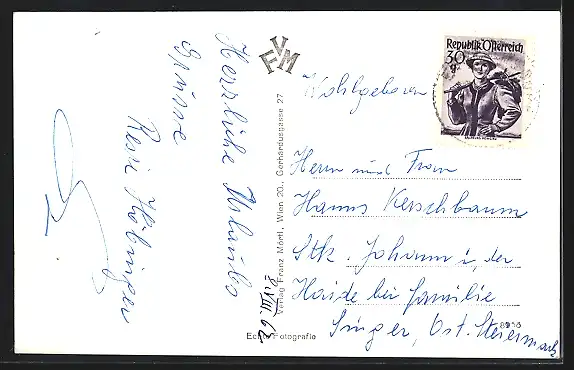 Herzliche Urlaubs
Grüsse
Resi Höbinger
8.VIII.62
FVM
Verlag Franz Mörtl, Wien 20., Gerhardusgasse 27
Echte Fotografie
Republik Österreich
30 g
Wohlgeboren
Herrn und Frau
Hanns Kerschbaum
Stk. Johann i. der
Haide bei Familie
Singer, Ost. Steiermark